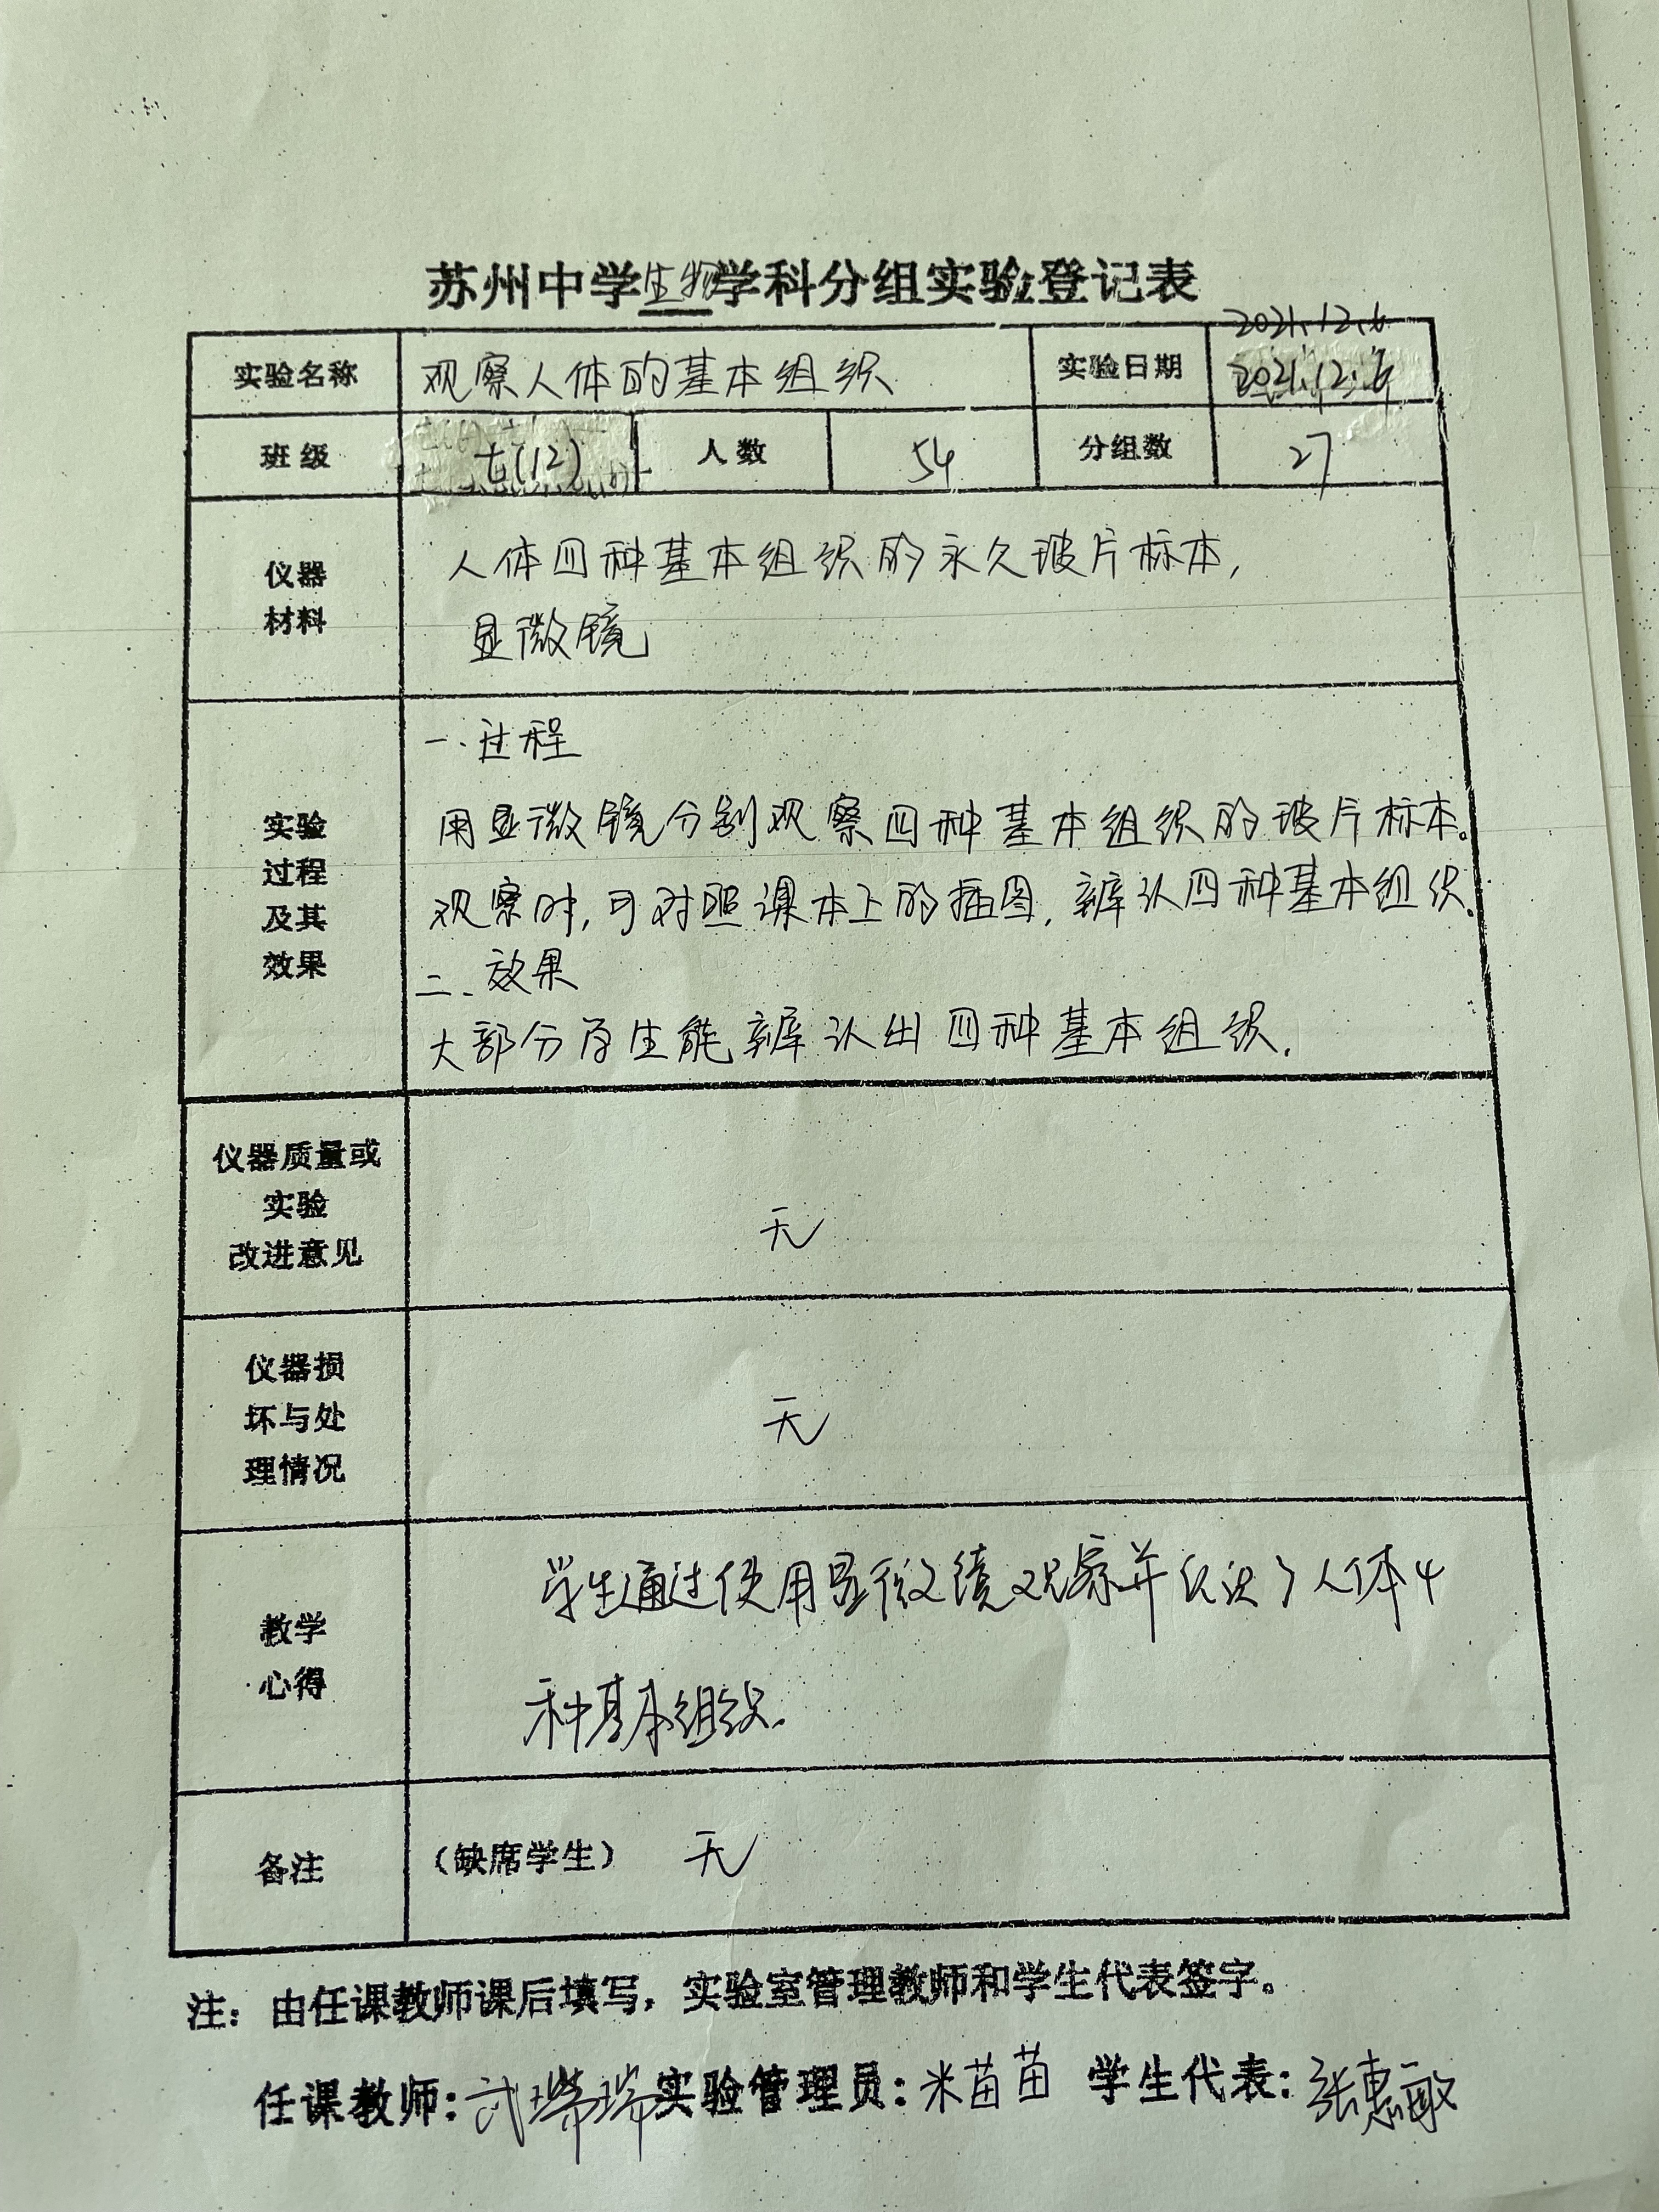 苏州中学生物学科分组实验登记表
2021.12.6
实验名称 观察人体的基本组织 实验日期 2021.12.6
班级 七(12) 人数 54 分组数 27
仪器 人体四种基本组织的永久玻片标本,
材料 显微镜
一、过程
实验 用显微镜分别观察四种基本组织的玻片标本。
过程
及其 观察时,可对照课本上的插图,辨认四种基本组织.
效果 二、效果
大部分学生能辨认出四种基本组织.
仪器质量或
实验 无
改进意见
仪器损
坏与处 无
理情况
学生通过使用显微镜观察并认识了人体4
教学
心得 种基本组织.
备注 (缺席学生) 无
注:由任课教师课后填写,实验室管理教师和学生代表签字。
任课教师:武瑞瑞 实验管理员:米苗苗 学生代表:张惠敏